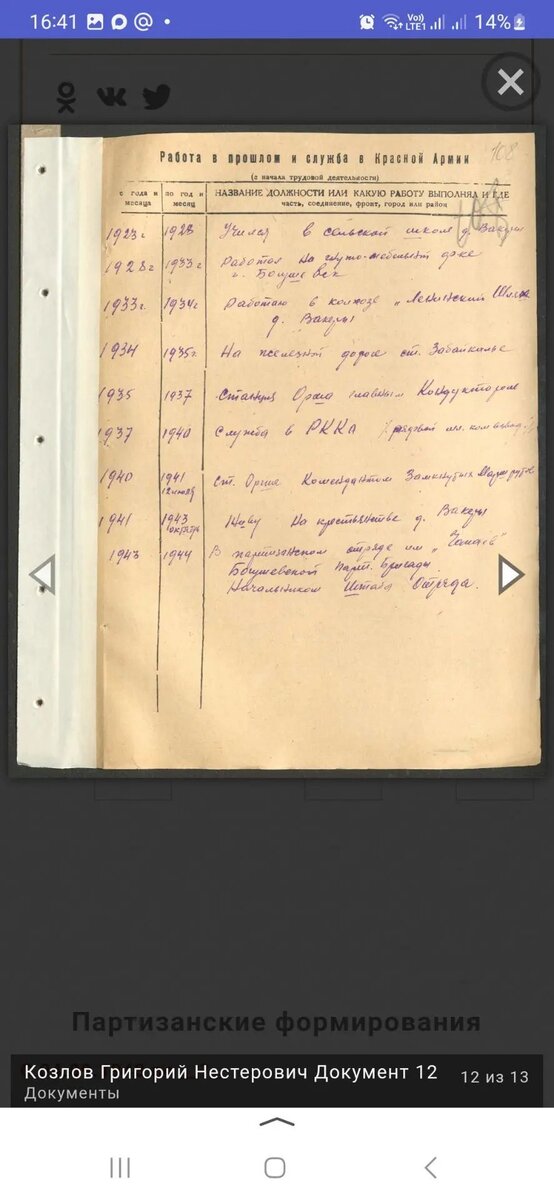 16:41
Vo))
LTE1
14%
108
Работа в прошлом и служба в Красной Армии
(с начала трудовой деятельности)
с года и месяца
по год и месяц
НАЗВАНИЕ ДОЛЖНОСТИ ИЛИ КАКУЮ РАБОТУ ВЫПОЛНЯЛ И ГДЕ
часть, соединение, фронт, город или район
1923 г 1928 Учился в сельской школе д. Вакеры
1928 г 1933 г Работал на
г.
1933 г. 1934 г Работаю в колхозе „Ленинский
д. Вакеры
1934 1935 г. На железной дороге ст. Забайкалье
1935 1937 Станция Орша главным Кондуктором
1937 1940 Служба в РККА
1940 1941 ст. Орша Комендантом Замкнутых Маршрутов
12 июля
1941 1943 Живу на крестьянстве д. Вакеры
октябрь
1943 1944 В партизанском отряде им „Чапаев"
Парт. Бригады
Начальником Штаба Отряда.
Партизанские формирования
Козлов Григорий Нестерович Документ 12
12 из 13
Документы